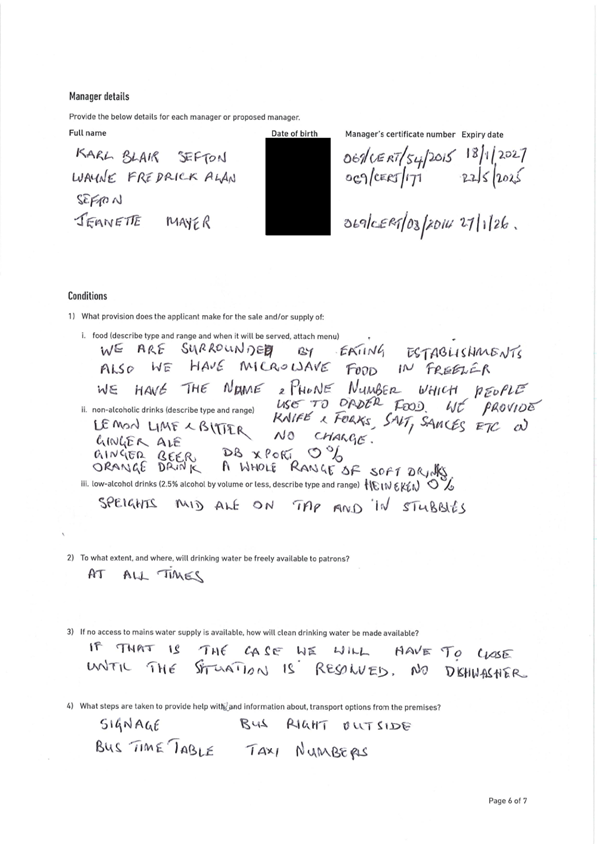 Manager details
Provide the below details for each manager or proposed manager.
Full name Date of birth Manager's certificate number Expiry date
KARL BLAIR SEFTON 069/CERT/54/2015 18/1/2027
WAYNE FREDRICK ALAN 069/CERT/171 22/5/2025
SEFTON
JEANETTE MAYER 069/CERT/03/2014 27/1/26.
Conditions
1) What provision does the applicant make for the sale and/or supply of:
i. food (describe type and range and when it will be served, attach menu)
WE ARE SURROUNDED BY EATING ESTABLISHMENTS
ALSO WE HAVE MICROWAVE FOOD IN FREEZER
WE HAVE THE NAME & PHONE NUMBER WHICH PEOPLE
USE TO ORDER FOOD. WE PROVIDE
KNIFE & FORKS, SALT, SAUCES ETC @
NO CHARGE.
ii. non-alcoholic drinks (describe type and range)
LEMON LIME & BITTER
GINGER ALE
GINGER BEER DB XPORT 0%
ORANGE DRINK A WHOLE RANGE OF SOFT DRINKS
iii. low-alcohol drinks (2.5% alcohol by volume or less, describe type and range) HEINEKEN 0%
SPEIGHTS MID ALE ON TAP AND IN STUBBIES
2) To what extent, and where, will drinking water be freely available to patrons?
AT ALL TIMES
3) If no access to mains water supply is available, how will clean drinking water be made available?
IF THAT IS THE CASE WE WILL HAVE TO CLOSE
UNTIL THE SITUATION IS RESOLVED. NO DISHWASHER
4) What steps are taken to provide help with, and information about, transport options from the premises?
SIGNAGE BUS RIGHT OUTSIDE
BUS TIME TABLE TAXI NUMBERS
Page 6 of 7